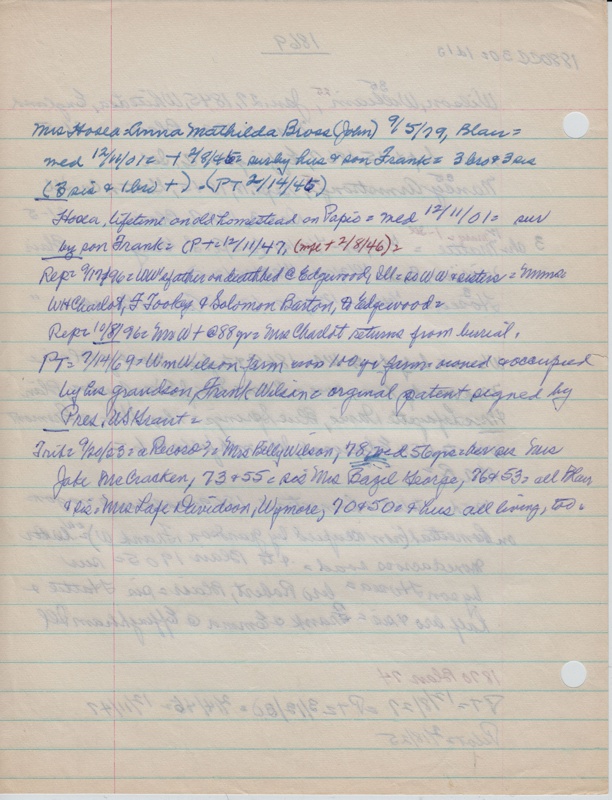 Mrs Hosea = Anna Mathilda Bross (John) 9/5/79, Blair =
med 12/11/01 = + 2/8/45 = surby hus & son Frank = 3 bro & 3 sis
(3 sis & 1 bro +) = (PT 2/14/45)
Hosea, lifetime on old homestead on Papio = med 12/11/01 = sur
by son Frank = (P + = 12/11/47, + 2/8/46) =
Rep = 96 = WW's father on deathbed @ Edgewood, Ill = so WW & sisters = Emma
WH Charlot, F Tooky & Solomon Barton, to Edgewood =
Rep = 10/8/96 = Mr W + @ 88 yr = Mrs Charlot returns from burial.
PT = 7/14/69 = Wm Wilson farm was 100 yr farm = owned & occupied
by his grandson, Frank Wilson = orginal patent signed by
Pres, US Grant =
Trib = 9/20/53 = a Record? = Mrs Kelly Wilson, 78, wed 56 yrs = her sis Mrs
Jake McCracken, 73 & 55 = sis Mrs Bazel George, 76 & 53 = all Blair
& sis = Mrs Lafe Davidson, Wymore, 70 & 50 = & hus all living, too =